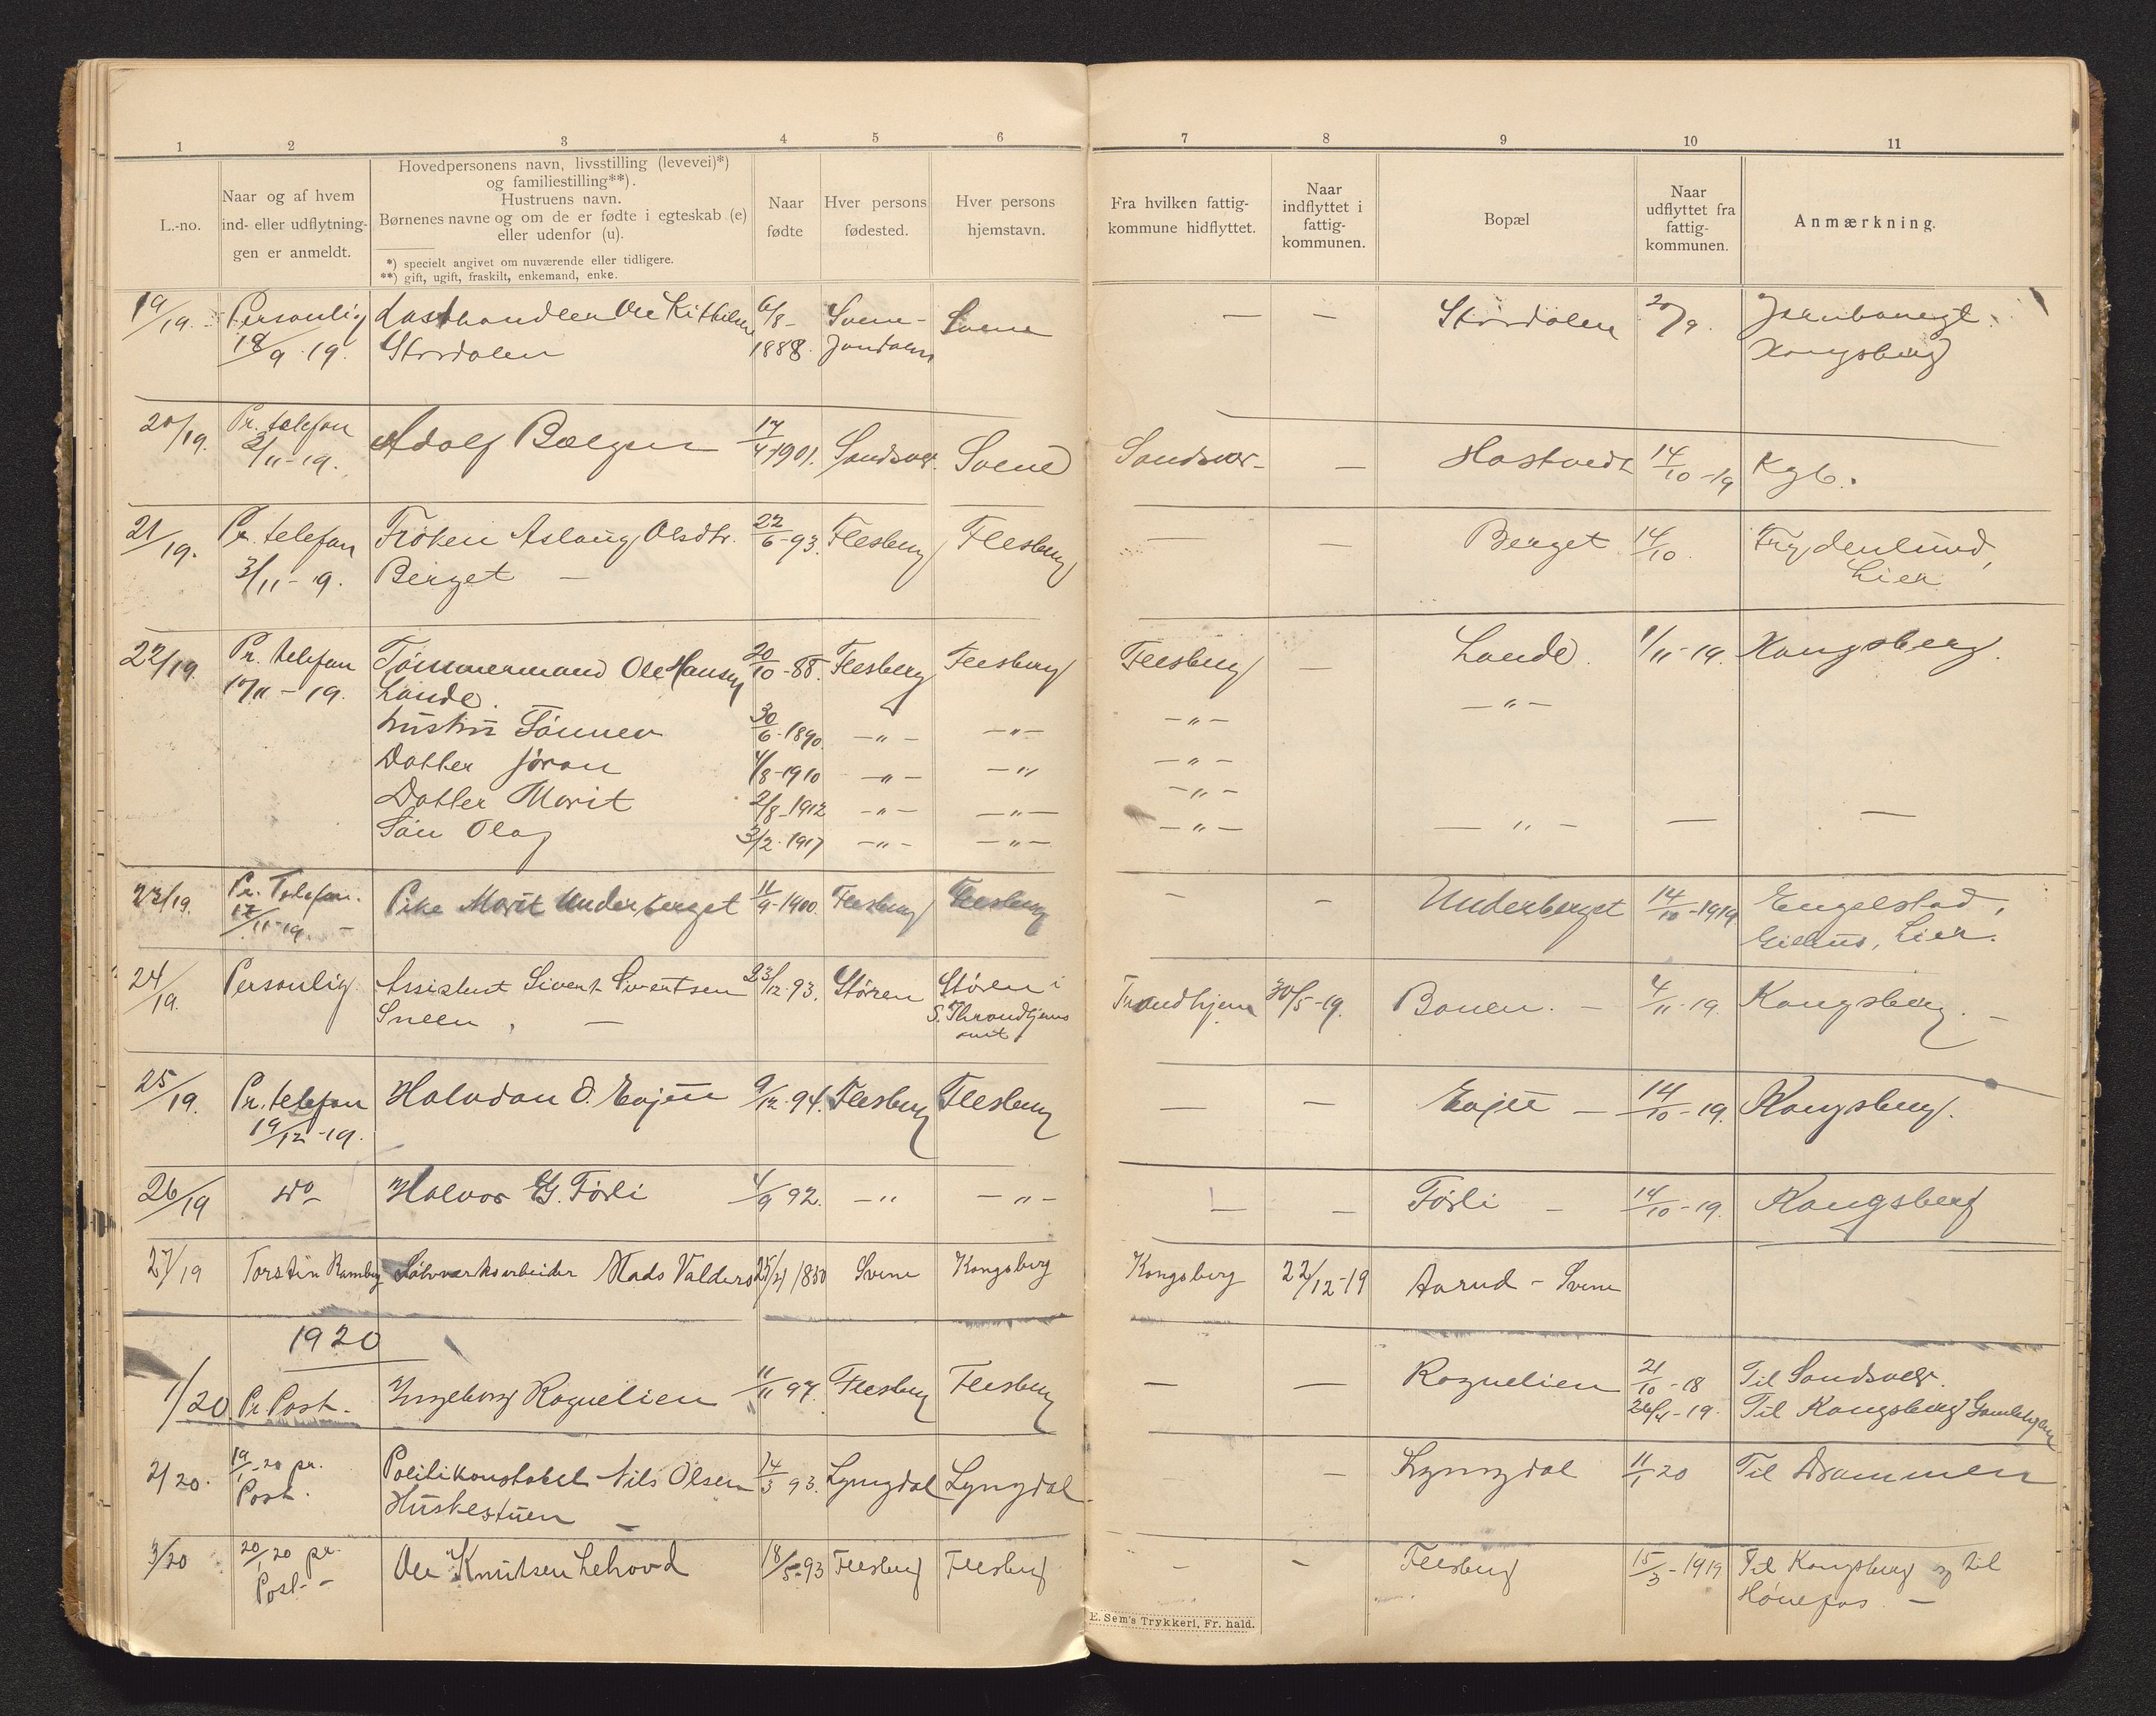 1 2 3 4 5 6 7 8 9 10 11
L.-no.
Naar og af hvem
ind- eller udflytning-
gen er anmeldt.
Hovedpersonens navn, livsstilling (levevei)*)
og familiestilling**).
Hustruens navn.
Børnenes navne og om de er fødte i egteskab (e)
eller udenfor (u).
*) specielt angivet om nuværende eller tidligere.
**) gift, ugift, fraskilt, enkemand, enke.
Naar
fødte
Hver persons
fødested.
Hver persons
hjemstavn.
Fra hvilken fattig-
kommune hidflyttet.
Naar
indflyttet i
fattig-
kommunen.
Bopæl
Naar
udflyttet fra
fattig-
kommunen.
Anmærkning.
19/19. Personlig Ole 6/8- Svene- Svene — — Stordalen 20/9.
18/9 19. Stordalen 1888. Jondalen Kongsberg
20/19. Pr. telefon Adolf 17/4-1901. Sandsver Svene Sandsver — 14/10-19 Kgb.
3/11-19.
21/19. Pr. telefon Frøken Aslaug Olsdtr. 22/6-93. Flesberg Flesberg — — Berget 14/10. Frydenlund,
3/11-19. Berget — Lier
22/19. Pr. telefon Tømmermand Ole Hansen 20/10-88. Flesberg Flesberg Flesberg — Lande. 1/11-19. Kongsberg.
17/11-19. Lande.
Hustru Tønner 30/6-1890. —"— —"— —"— —"—
Datter Jøran 4/8-1910 —"— —"— —"—
Datter Marit 2/8-1912 —"— —"— —"—
Søn Olaf 3/2-1917 —"— —"— —"— —"— — —
23/19. Pr. Telefon. Pike Marit Underberget 11/9-1900. Flesberg Flesberg — — Underberget 14/10-1919 Engelstad,
17/11-19. — Gilhus, Lier.
24/19. Personlig Assistent Sivert Sivertsen 23/12-93. Støren Støren i Trondhjem 30/5-19. Bonen. — 4/11-19. Kongsberg. —
Sneen, — S. Throndhjems
amt
25/19. Pr. telefon Halvdan O. Evju 9/12-94. Flesberg Flesberg — — Evju — 14/10-19. Kongsberg.
19/12-19.
26/19 do Halvor G. Førli 4/9 92. —" —"— — — Førli — 14/10-19. Kongsberg
27/19 Torstin Ramberg Sølvverksarbeider Mads Valders 1850 Svene Kongsberg Kongsberg 22/12-19 Aarud - Svene
1920
1/20 Pr Post. Ingeborg Roguelien 11/11 97. Flesberg Flesberg — — Roguelien 21/10-18 Til Sandsver.
-19. Til Kongsberg
2/20. 19/1-20 pr. Politikonstabel Nils Olsen 14/3 93. Lyngdal Lyngdal — Lyngdal 11/1 20 Til Drammen
Post. Huskestuen —
3/20 20/1 20 pr. Ole Knutsen Lehovd 18/5-93 Flesberg Flesberg — — Flesberg 15/3-1919 Til Kongsberg og til
Post.- Hønefos. —
E. Sem's Trykkeri, Fr. hald.